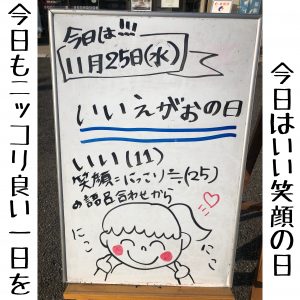 今日はいい笑顔の日
今日は!!!
11月25日(水)
いいえがおの日
いい(11)
笑顔=にっこり≒(25)
の語呂合わせから
にこ
にこ
今日もニッコリ良い一日を